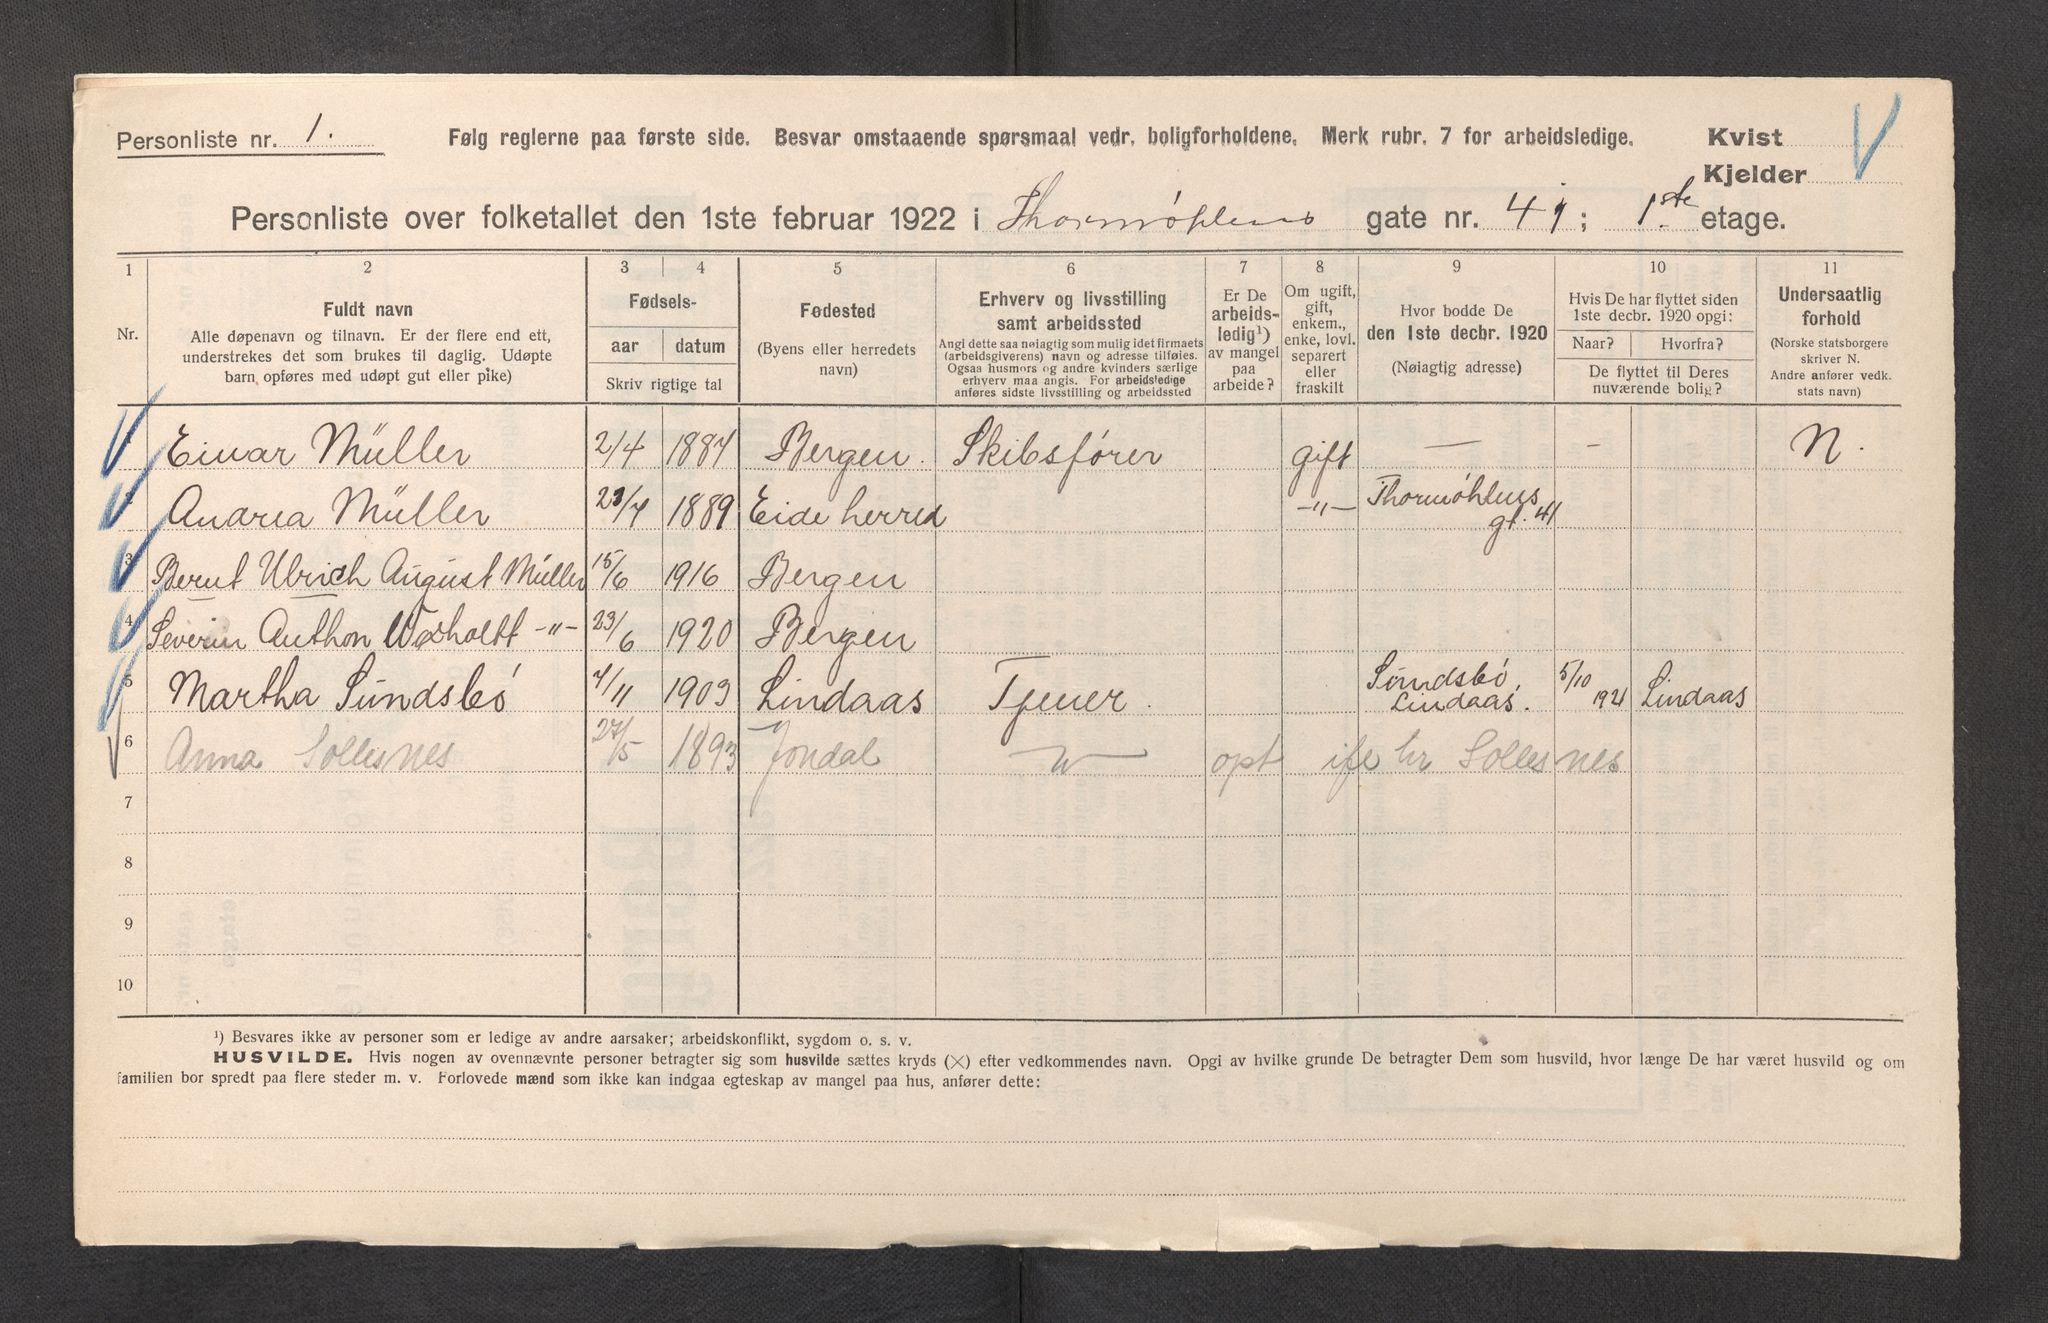 Personliste nr. 1.
Følg reglerne paa første side. Besvar omstaaende spørsmaal vedr. boligforholdene. Merk rubr. 7 for arbeidsledige.
Kvist
Kjelder
Personliste over folketallet den 1ste februar 1922 i Thormøhlens gate nr. 41; 1.ste etage.
1 2 3 4 5 6 7 8 9 10 11
Nr.
Fuldt navn
Alle døpenavn og tilnavn. Er der flere end ett,
understrekes det som brukes til daglig. Udøpte
barn opføres med udøpt gut eller pike)
Fødsels-
aar datum
Skriv rigtige tal
Fødested
(Byens eller herredets
navn)
Erhverv og livsstilling
samt arbeidssted
Angi dette saa nøiagtig som mulig idet firmaets
(arbeidsgiverens) navn og adresse tilføies.
Ogsaa husmors og andre kvinders særlige
erhverv maa angis. For arbeidsledige
anføres sidste livsstilling og arbeidssted
Er De
arbeids-
ledig¹)
av mangel
paa
arbeide?
Om ugift,
gift,
enkem.,
enke, lovl.
separert
eller
fraskilt
Hvor bodde De
den 1ste decbr. 1920
(Nøiagtig adresse)
Hvis De har flyttet siden
1ste decbr. 1920 opgi:
Naar? Hvorfra?
De flyttet til Deres
nuværende bolig?
Undersaatlig
forhold
(Norske statsborgere
skriver N.
Andre anfører vedk.
stats navn)
1 Einar Müller 2/4 1887 Bergen. Skibsfører gift — - N.
2 Andrea Müller 23/7 1889 Eide herred -"- Thormøhlens gt. 41
3 Bernt Ulrich August Müller 15/6 1916 Bergen
4 Severin Anthon -"- 23/6 1920 Bergen
5 Martha Sundsbó 7/11 1903 Lindaas Tjener. Sundsbó, Lindaas. 5/10 1921 Lindaas
6 Anna Sollesnes 27/5 1893 Jondal opt Sollesnes
7
8
9
10
¹) Besvares ikke av personer som er ledige av andre aarsaker; arbeidskonflikt, sygdom o. s. v.
HUSVILDE. Hvis nogen av ovennævnte personer betragter sig som husvilde sættes kryds (×) efter vedkommendes navn. Opgi av hvilke grunde De betragter Dem som husvild, hvor længe De har været husvild og om
familien bor spredt paa flere steder m. v. Forlovede mænd som ikke kan indgaa egteskap av mangel paa hus, anfører dette: